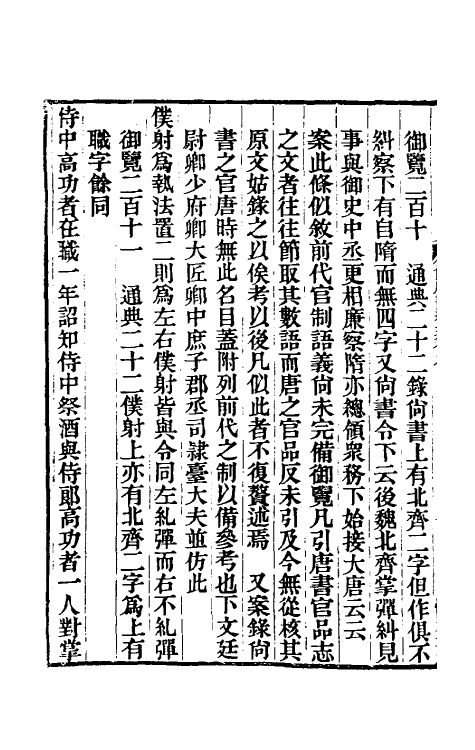 御覽二百十　通典二十二錄尚書上有北齊二字但作俱不
糾察下有自隋而無四字又尚書令下云後魏北齊掌彈糾見
事與御史中丞更相廉察隋亦總領衆務下始接大唐云云
案此條似敘前代官制語義尚未完備御覽凡引唐書官品志
之文者往往節取其數語而唐之官品反未引及今無從核其
原文姑錄之以俟考以後凡似此者不復贅述焉　又案錄尚
書之官唐時無此名目蓋附列前代之制以備參考也下文廷
尉卿少府卿大匠卿中庶子郡丞司隸臺大夫並仿此
僕射爲執法置二則爲左右僕射皆與令同左糺彈而右不糺彈
御覽二百十一　通典二十二僕射上亦有北齊二字爲上有
職字餘同
侍中高功者在職一年詔知侍中祭酒與侍郎高功者一人對掌